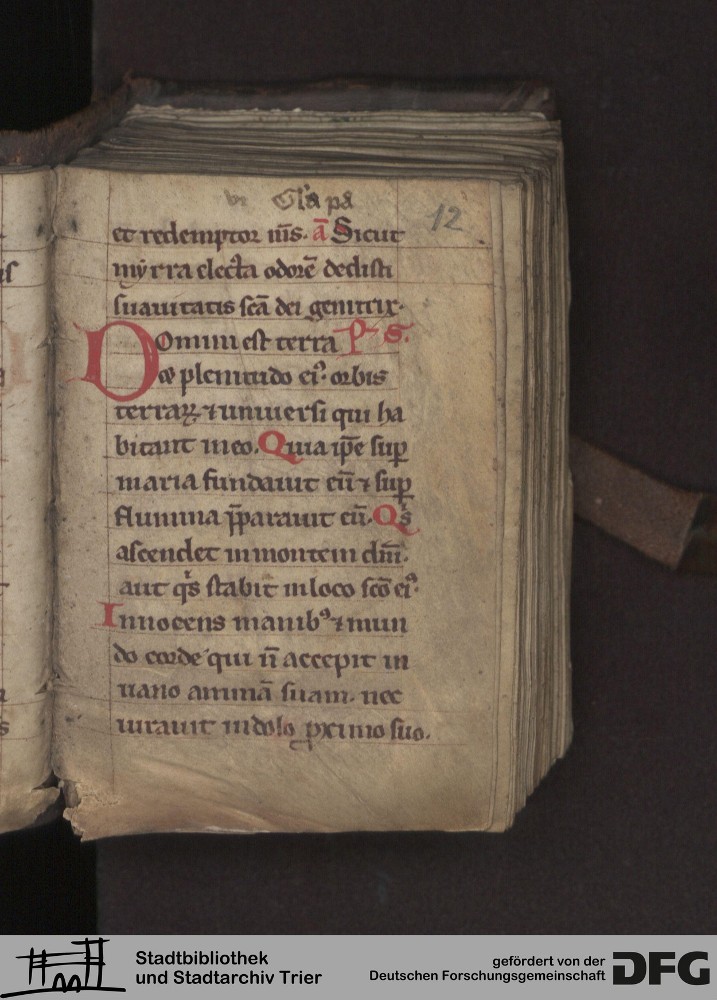 Gl'a pa
12
et redemptor m̄s. ā Sicut
myrra electa odorē dedisti
suauitatis sc̄a dei genitrix.
Domini est terra Ps.
& plenitudo ei᷒. orbis
terraꝝ ⁊ uniuersi qui ha
bitant in eo. Quia ip̄e sup̱
maria fundauit eū ⁊ sup̱
flumina p̄parauit eū. Qͥs
ascendet in montem dn̄i.
aut qͥs stabit in loco sc̄o ei᷒.
Innocens manibꝰ ⁊ mun
do corde qui n̄ accepit in
uano animā suam. nec
iurauit in dolo ꝓximo suo.
Stadtbibliothek
und Stadtarchiv Trier
gefördert von der
Deutschen Forschungsgemeinschaft
DFG